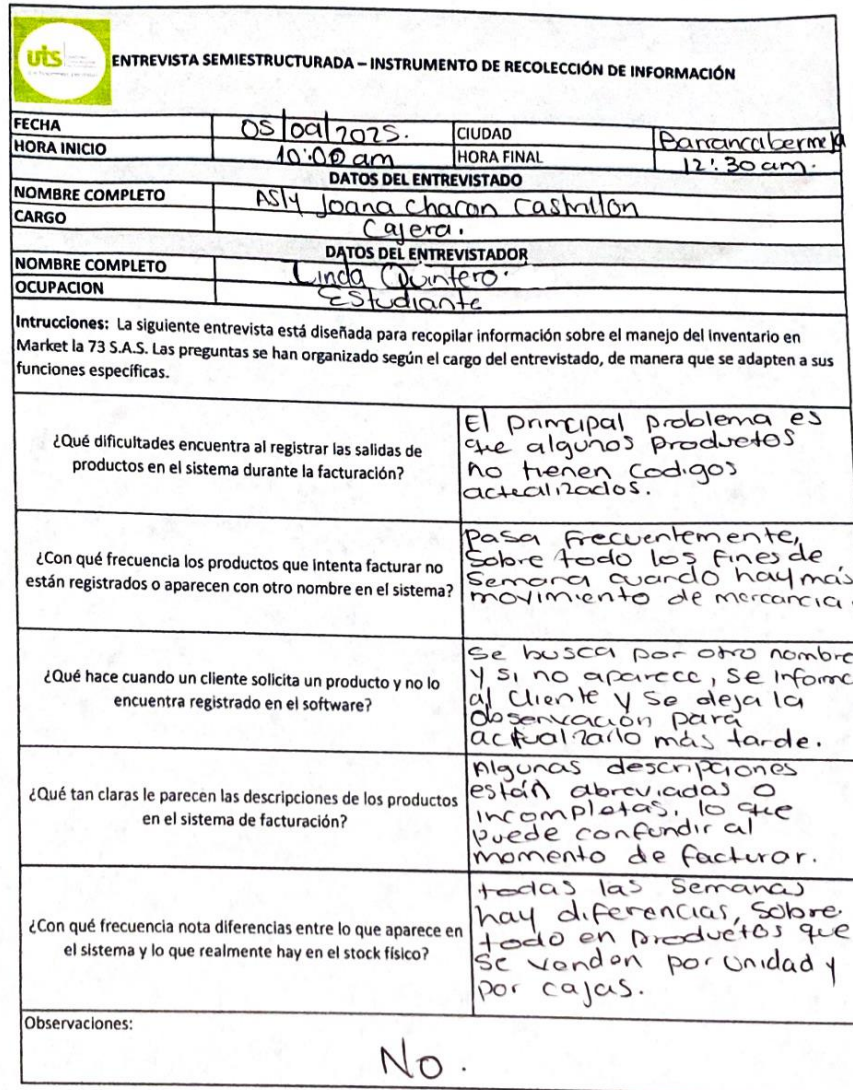 uts
ENTREVISTA SEMIESTRUCTURADA – INSTRUMENTO DE RECOLECCIÓN DE INFORMACIÓN
FECHA 05/09/2025. CIUDAD Barrancabermeja
HORA INICIO 10:00 am HORA FINAL 12:30 am.
DATOS DEL ENTREVISTADO
NOMBRE COMPLETO Asly Joana Chacon Castrillon
CARGO Cajera.
DATOS DEL ENTREVISTADOR
NOMBRE COMPLETO Linda Quintero.
OCUPACION Estudiante
Intrucciones: La siguiente entrevista está diseñada para recopilar información sobre el manejo del inventario en
Market la 73 S.A.S. Las preguntas se han organizado según el cargo del entrevistado, de manera que se adapten a sus
funciones específicas.
¿Qué dificultades encuentra al registrar las salidas de
productos en el sistema durante la facturación?
El principal problema es
que algunos productos
no tienen codigos
actualizados.
¿Con qué frecuencia los productos que intenta facturar no
están registrados o aparecen con otro nombre en el sistema?
Pasa frecuentemente,
Sobre todo los fines de
Semana cuando hay más
movimiento de mercancia.
¿Qué hace cuando un cliente solicita un producto y no lo
encuentra registrado en el software?
Se busca por otro nombre
y si no aparece, se informa
al cliente y se deja la
observación para
actualizarlo más tarde.
¿Qué tan claras le parecen las descripciones de los productos
en el sistema de facturación?
Algunas descripciones
están abreviadas o
incompletas, lo que
puede confundir al
momento de facturar.
¿Con qué frecuencia nota diferencias entre lo que aparece en
el sistema y lo que realmente hay en el stock físico?
todas las semanas
hay diferencias, sobre
todo en productos que
se venden por unidad y
por cajas.
Observaciones:
No.